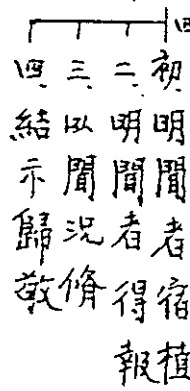 四
初明聞者宿植
二、明聞者得報
三、以聞況脩
四、結示歸敬